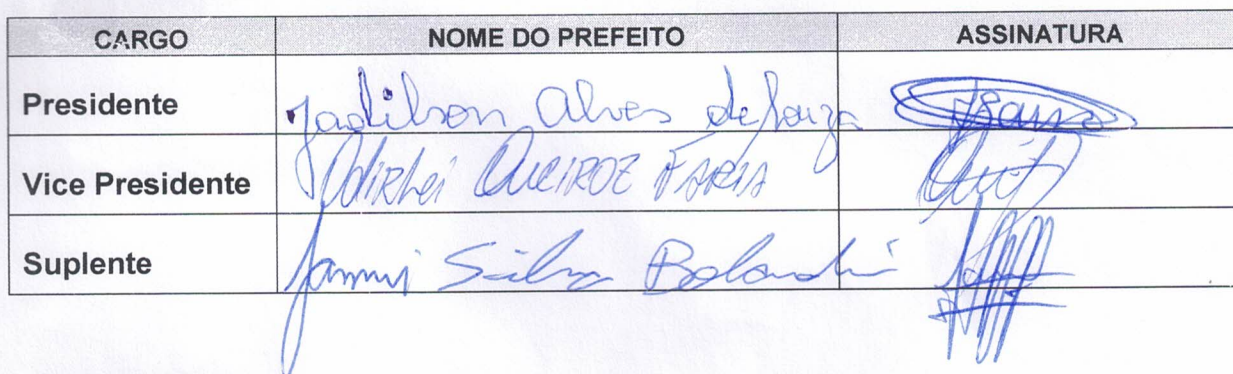 CARGO NOME DO PREFEITO ASSINATURA
Presidente Jadilson Alves de Souza
Vice Presidente Odirlei Queiroz Faria
Suplente Silva